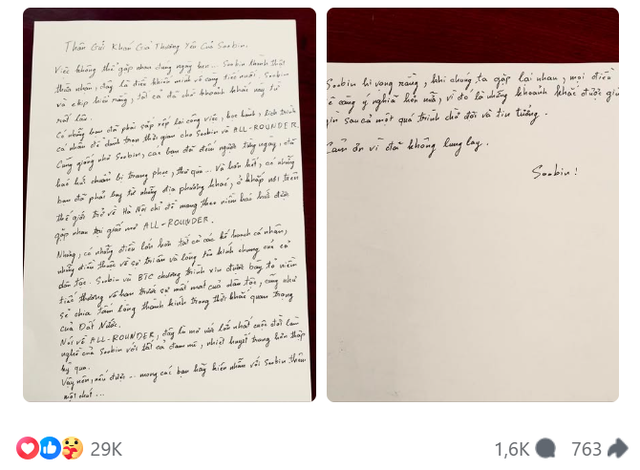 Thân Gửi Khán Giả Thương Yêu Của Soobin,
Việc không thể gặp nhau đúng ngày hẹn... Soobin thành thật
thừa nhận, đây là điều khiến mình vô cùng tiếc nuối. Soobin
và ekip hiểu rằng, tất cả đã chờ khoảnh khắc này từ
rất lâu.
Có những bạn đã phải sắp xếp lại công việc, học hành, lịch trình
cá nhân để dành trọn thời gian cho Soobin và ALL-ROUNDER.
Cũng giống như Soobin, các bạn đã đếm ngược từng ngày, đã
háo hức chuẩn bị trang phục, thứ quà... Và hơn hết, có những
bạn đã phải bay từ những địa phương khác, ở khắp nơi trên
thế giới trở về Hà Nội chỉ để mang theo niềm háo hức được
gặp nhau tại giấc mơ ALL-ROUNDER.
Nhưng, có những điều lớn hơn tất cả các kế hoạch cá nhân,
những điều thuộc về sự tri ân và lòng tôn kính chung của cả
dân tộc. Soobin và BTC chương trình xin được bày tỏ niềm
tiếc thương vô hạn trước sự mất mát của dân tộc, cũng như
sẻ chia tấm lòng thành kính trong thời khắc quan trọng
của Đất Nước.
Nói về ALL-ROUNDER, đây là mơ ước lớn nhất cuộc đời làm
nghề của Soobin với tất cả đam mê, nhiệt huyết trong hơn thập
kỷ qua.
Vậy nên, nếu được... mong các bạn hãy kiên nhẫn với Soobin thêm
một chút...
Soobin hi vọng rằng, khi chúng ta gặp lại nhau, mọi điều
càng ý nghĩa hơn nữa, vì đó là những khoảnh khắc được
sau cả một quá trình chờ đợi và tin tưởng.
Cảm ơn vì đã không lung lay..
Soobin!
29K
1,6K 763